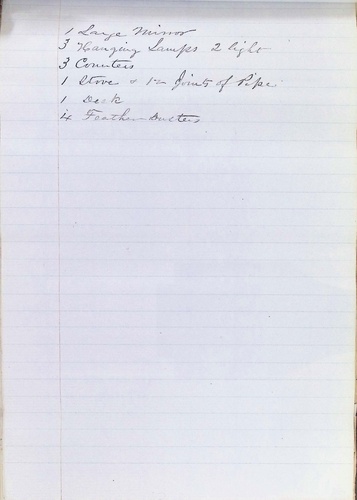 1 Large Mirror
3 Hanging Lamps 2 light
3 Counters
1 Stove & 12 Joints of Pipe
1 Desk
4 Feather Dusters